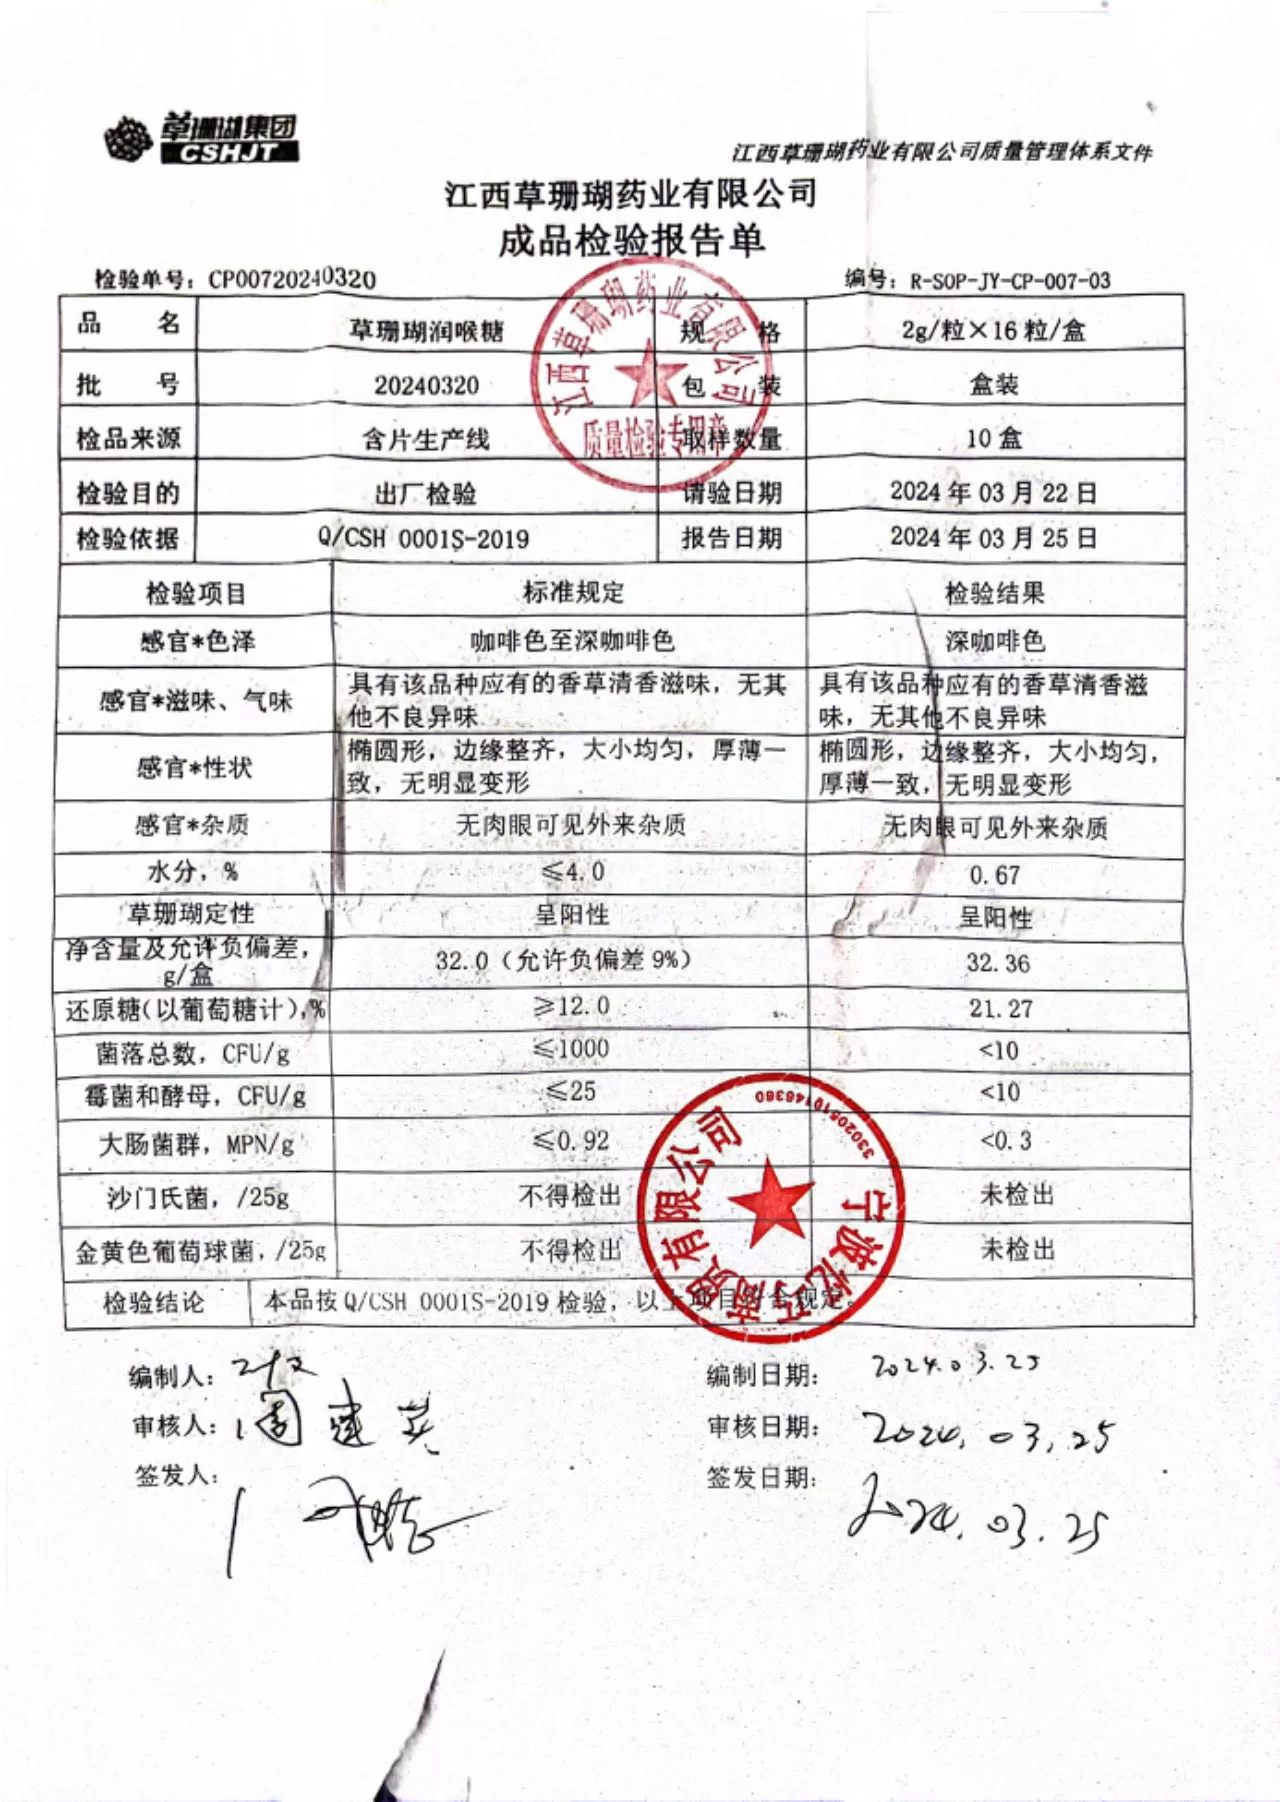 草珊瑚集团
CSHJT
江西草珊瑚药业有限公司质量管理体系文件
江西草珊瑚药业有限公司
成品检验报告单
检验单号：CP00720240320 编号：R-SOP-JY-CP-007-03
品 名 草珊瑚润喉糖 规 格 2g/粒×16粒/盒
批 号 20240320 包 装 盒装
检品来源 含片生产线 取样数量 10盒
检验目的 出厂检验 请验日期 2024年03月22日
检验依据 Q/CSH 0001S-2019 报告日期 2024年03月25日
江西草珊瑚药业有限公司
质量检验专用章
检验项目 标准规定 检验结果
感官*色泽 咖啡色至深咖啡色 深咖啡色
感官*滋味、气味 具有该品种应有的香草清香滋味，无其他不良异味 具有该品种应有的香草清香滋味，无其他不良异味
感官*性状 椭圆形，边缘整齐，大小均匀，厚薄一致，无明显变形 椭圆形，边缘整齐，大小均匀，厚薄一致，无明显变形
感官*杂质 无肉眼可见外来杂质 无肉眼可见外来杂质
水分，% ≤4.0 0.67
草珊瑚定性 呈阳性 呈阳性
净含量及允许负偏差，g/盒 32.0（允许负偏差9%） 32.36
还原糖(以葡萄糖计),% ≥12.0 21.27
菌落总数，CFU/g ≤1000 <10
霉菌和酵母，CFU/g ≤25 <10
大肠菌群，MPN/g ≤0.92 <0.3
沙门氏菌，/25g 不得检出 未检出
金黄色葡萄球菌，/25g 不得检出 未检出
检验结论 本品按Q/CSH 0001S-2019检验，以上项目符合规定。
宁波亿产商贸有限公司
编制人： 编制日期：2024.03.25
审核人：周建英 审核日期：2024.03.25
签发人： 签发日期：2024.03.25